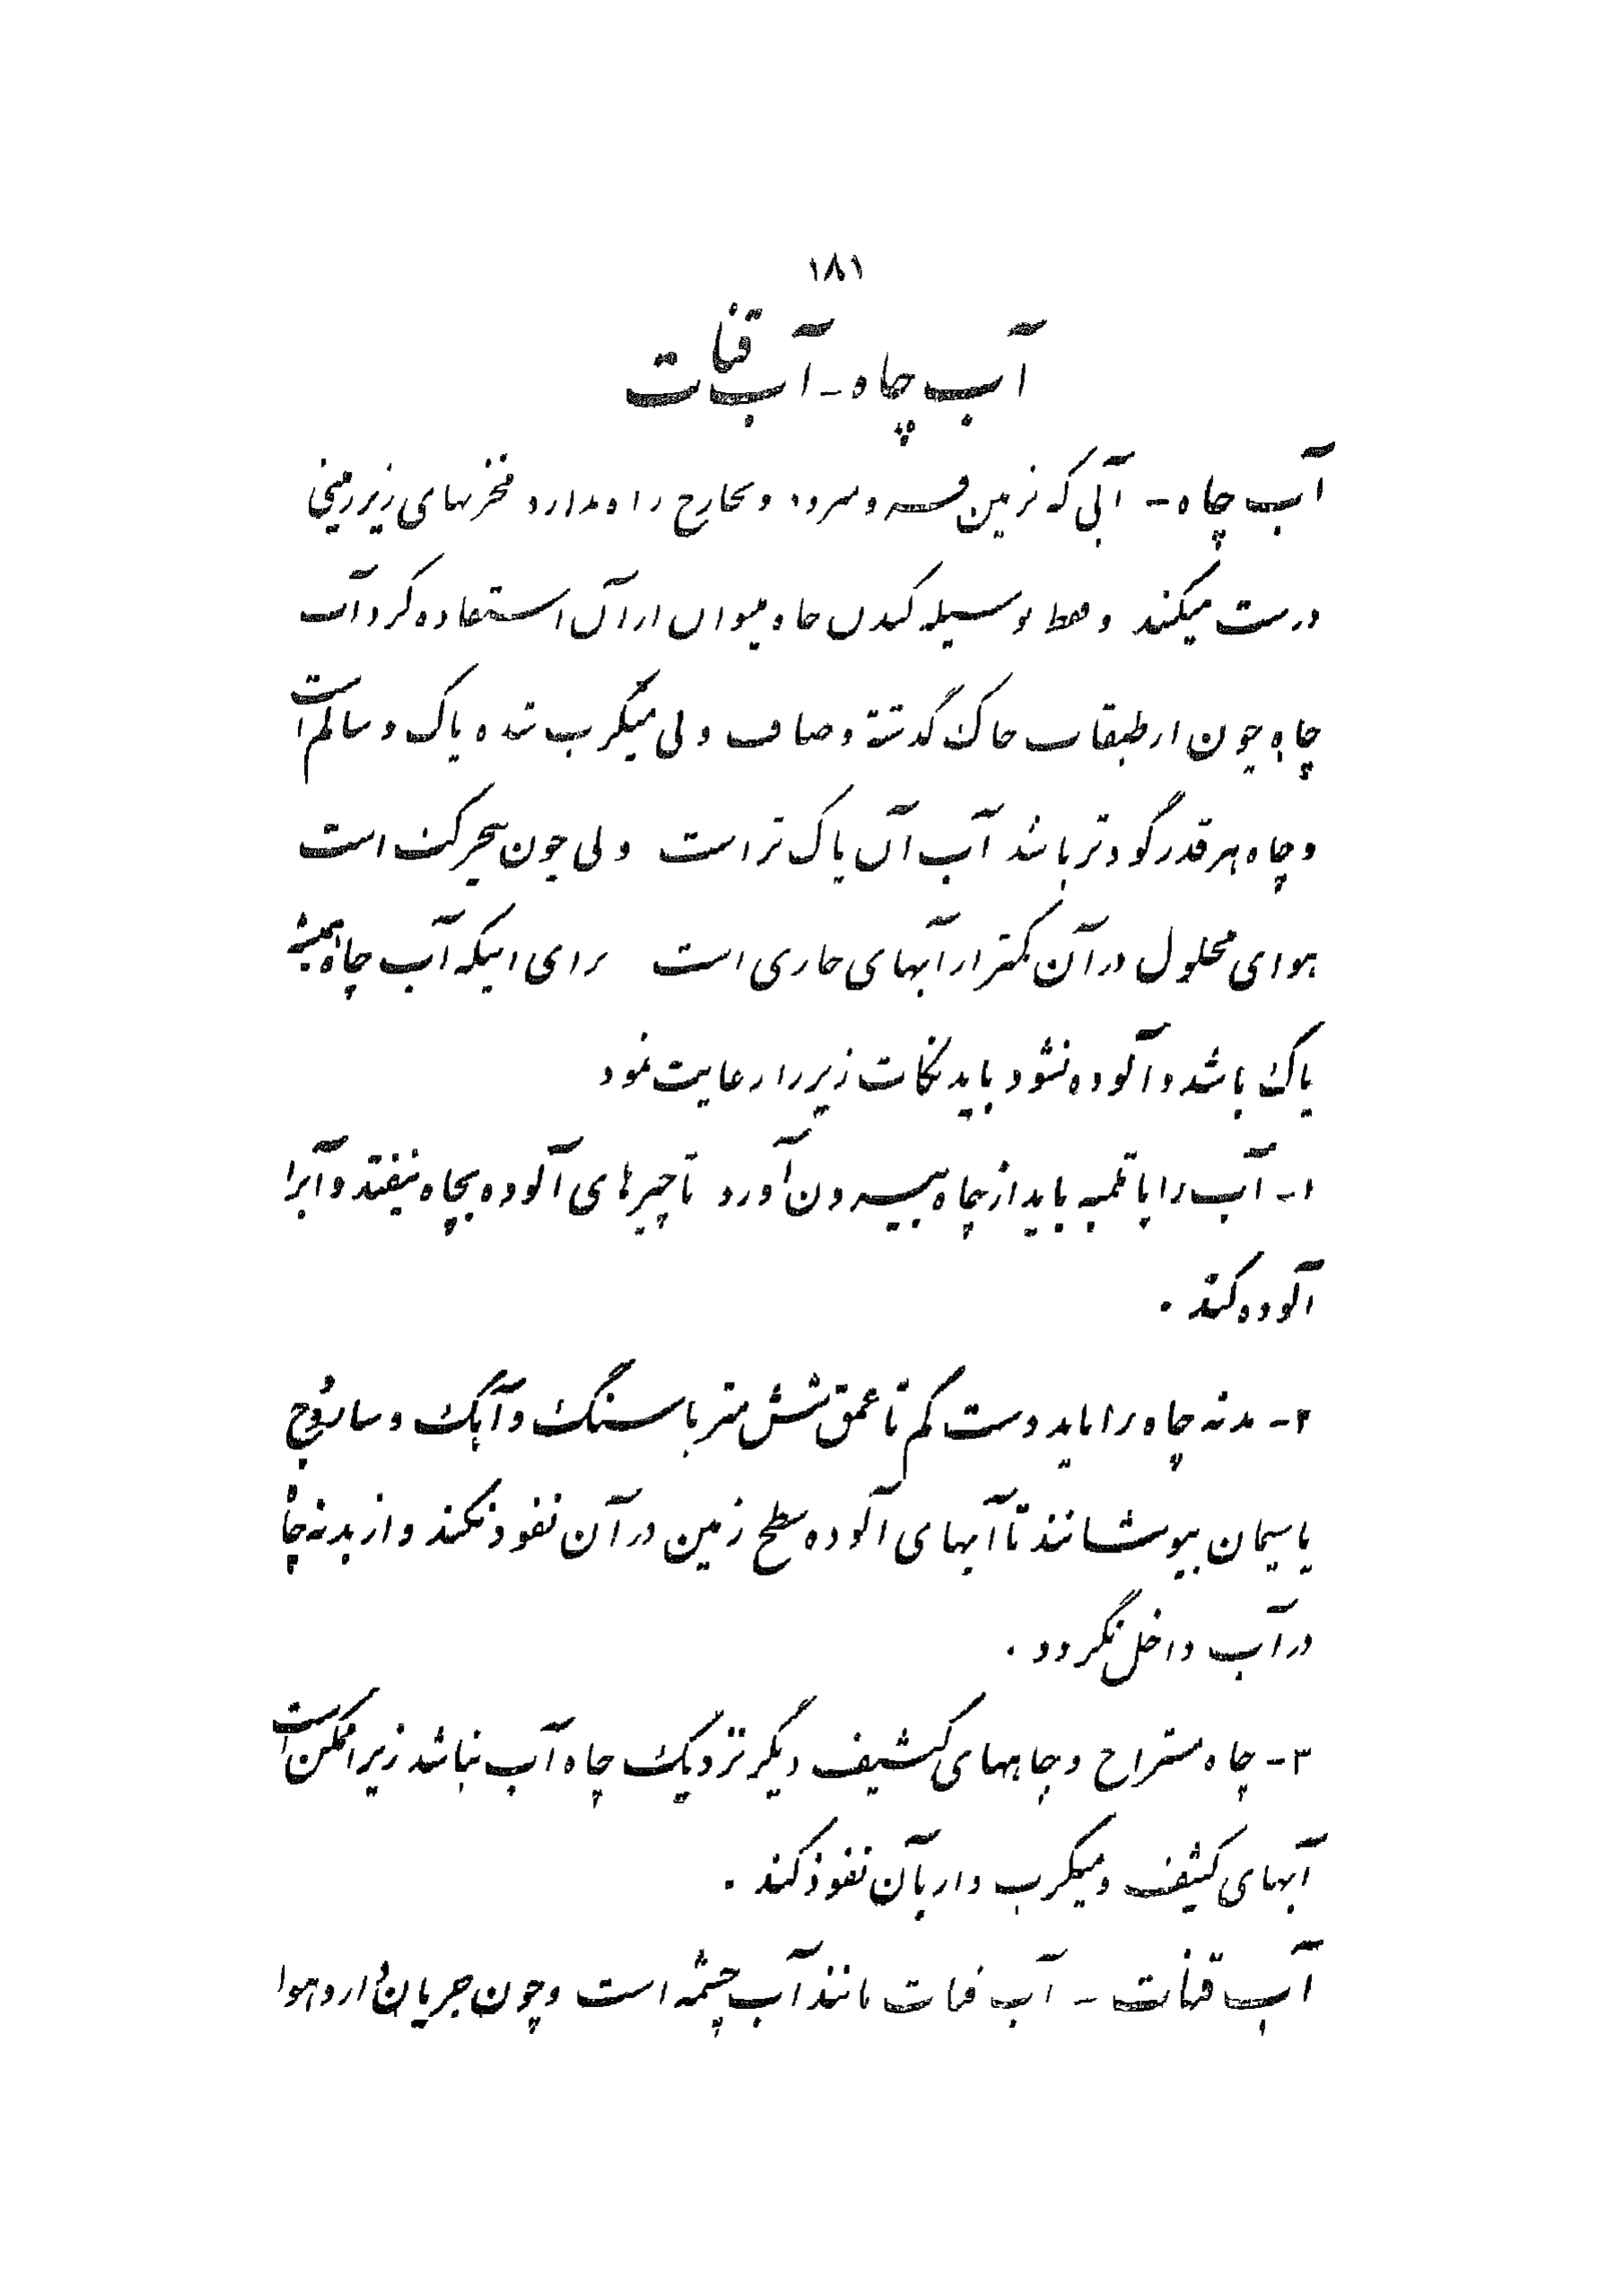 ۱۸۱
آب چاه - آب قنات
آب چاه - آبی که بزمین فرو میرود و بخارج راه ندارد مخزنهای زیرزمینی
درست میکند و فقط بوسیله کندن چاه میتوان از آن استفاده کرد آب
چاه چون از طبقات خاک گذشته و صاف و بی میکرب شده پاک و سالم است
و چاه هر قدر گودتر باشد آب آن پاک تر است ولی چون بیحرکت است
هوای محلول در آن کمتر از آبهای جاری است برای اینکه آب چاه همیشه
پاک باشد و آلوده نشود باید نکات زیر را رعایت نمود
۱- آب را با تلمبه باید از چاه بیرون آورد تا چیزهای آلوده بچاه نیفتد و آنرا
آلوده کند .
۲- بدنه چاه را باید دست کم تا عمق شش متر با سنگ و آهک و ساروج
یا سیمان بپوشانند تا آبهای آلوده سطح زمین در آن نفوذ نکند و از بدنه چاه
در آب داخل نگردد .
۳- چاه مستراح و چاههای کثیف دیگر نزدیک چاه آب نباشد زیرا ممکن است
آبهای کثیف و میکرب دار بآن نفوذ کند .
آب قنات - آب قنات مانند آب چشمه است و چون جریان دارد هوا